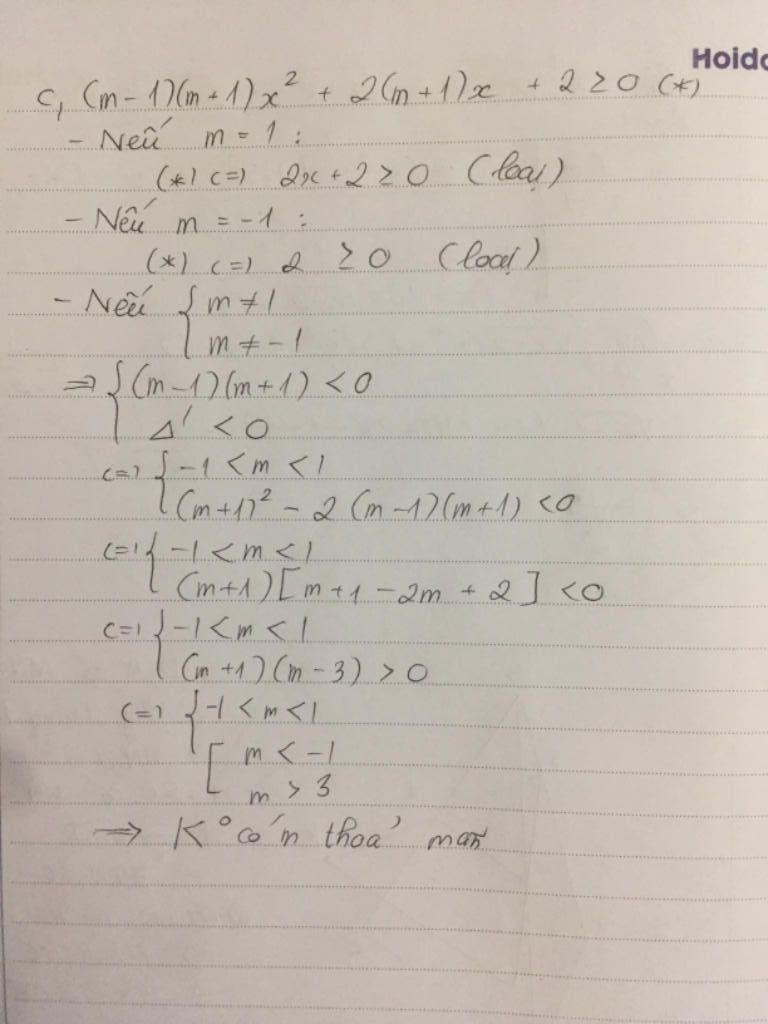 Hoido
c, (m-1)(m+1)x² + 2(m+1)x + 2 ≥ 0 (*)
- Nếu m = 1 :
(*) c=) 2x + 2 ≥ 0 (loại)
- Nếu m = -1 :
(*) c=) 2 ≥ 0 (loại)
- Nếu { m ≠ 1
m ≠ -1
=> { (m-1)(m+1) < 0
Δ' < 0
c=) { -1 < m < 1
(m+1)² - 2 (m-1)(m+1) < 0
c=) { -1 < m < 1
(m+1)[m+1-2m+2] < 0
c=) { -1 < m < 1
(m+1)(m-3) > 0
c=) { -1 < m < 1
[ m < -1
m > 3
=> K° có m thoả mãn